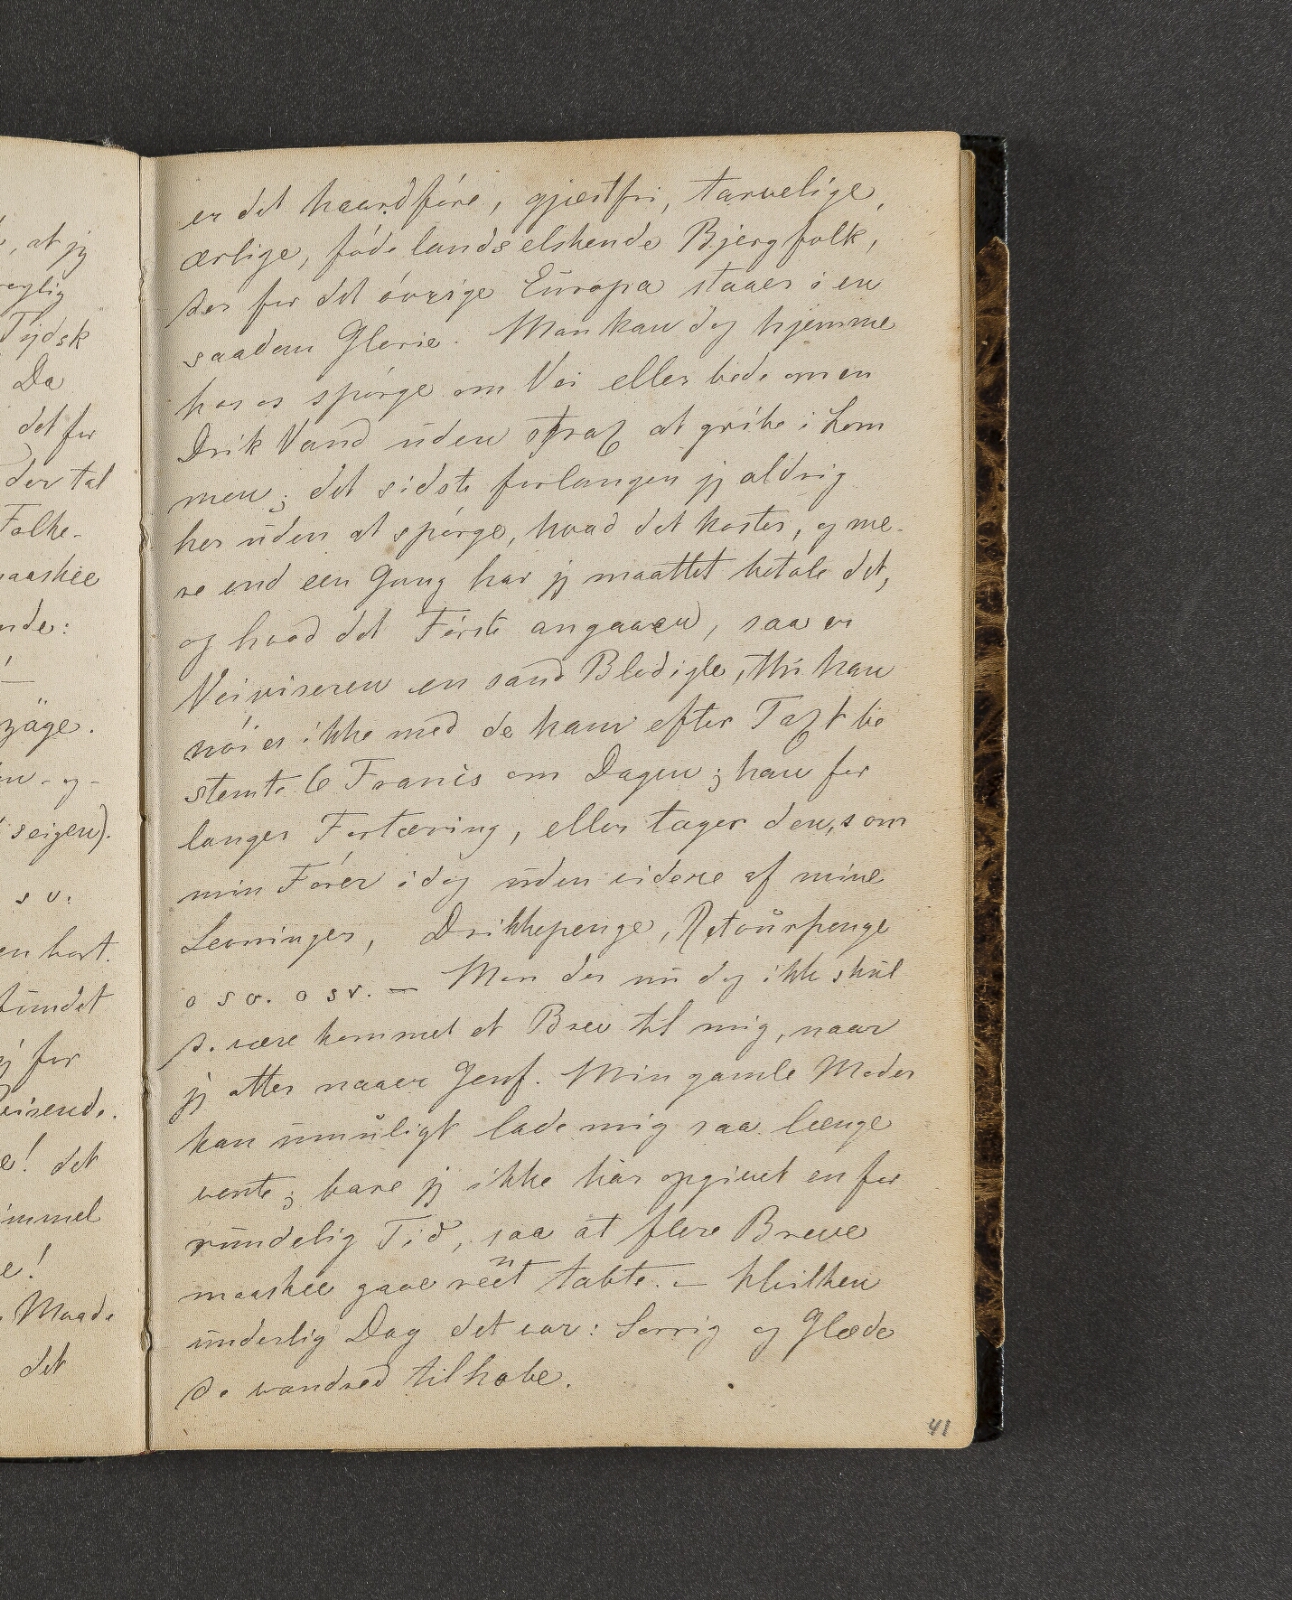 , at jg
Tydsk
Da
det for
der tal
Folke-
maaskee
nde:
züge.
en - og -
seigen).
s v.
en bort.
fundet
j for
Reisende.
e! det
immel
e!
Maade
det
er det haardføre, gjæstfri, tarvelige,
ærlige, fædelandselskende Bjergfolk,
der for det øvrige Europa staaer i en
saadan Glorie. Man kan dog hjemme
hos os spørge om Vei eller bede om en
Drik Vand uden strax at gribe i Lom
men; det sidste forlanger jg aldrig
her uden at spørge, hvad det koster, og me-
re end een Gang har jg maattet betale det,
og hvad det Første angaaer, saa er
Veiviseren en sand Blodigle, thi han
nøies ikke med de ham efter Taxt be
stemte 6 Francs om Dagen; han for
langer Fortæring, eller tager den, som
min Fører idag uden videre af mine
Levninger, Drikkepenge, Retourpenge
o s v. o s v. — Mon der nu dog ikke skul
de være kommet et Brev til mig, naar
jg atter naaer Genf. Min gamle Moder
kan umuligt lade mig saa længe
vente; bare jg ikke har opgivet en for
rundelig Tid, saa at flere Breve
maaskee gaae reent tabte. — Hvilken
underlig Dag det var: Sorrig og Glæde
de vandred tilhobe.
41